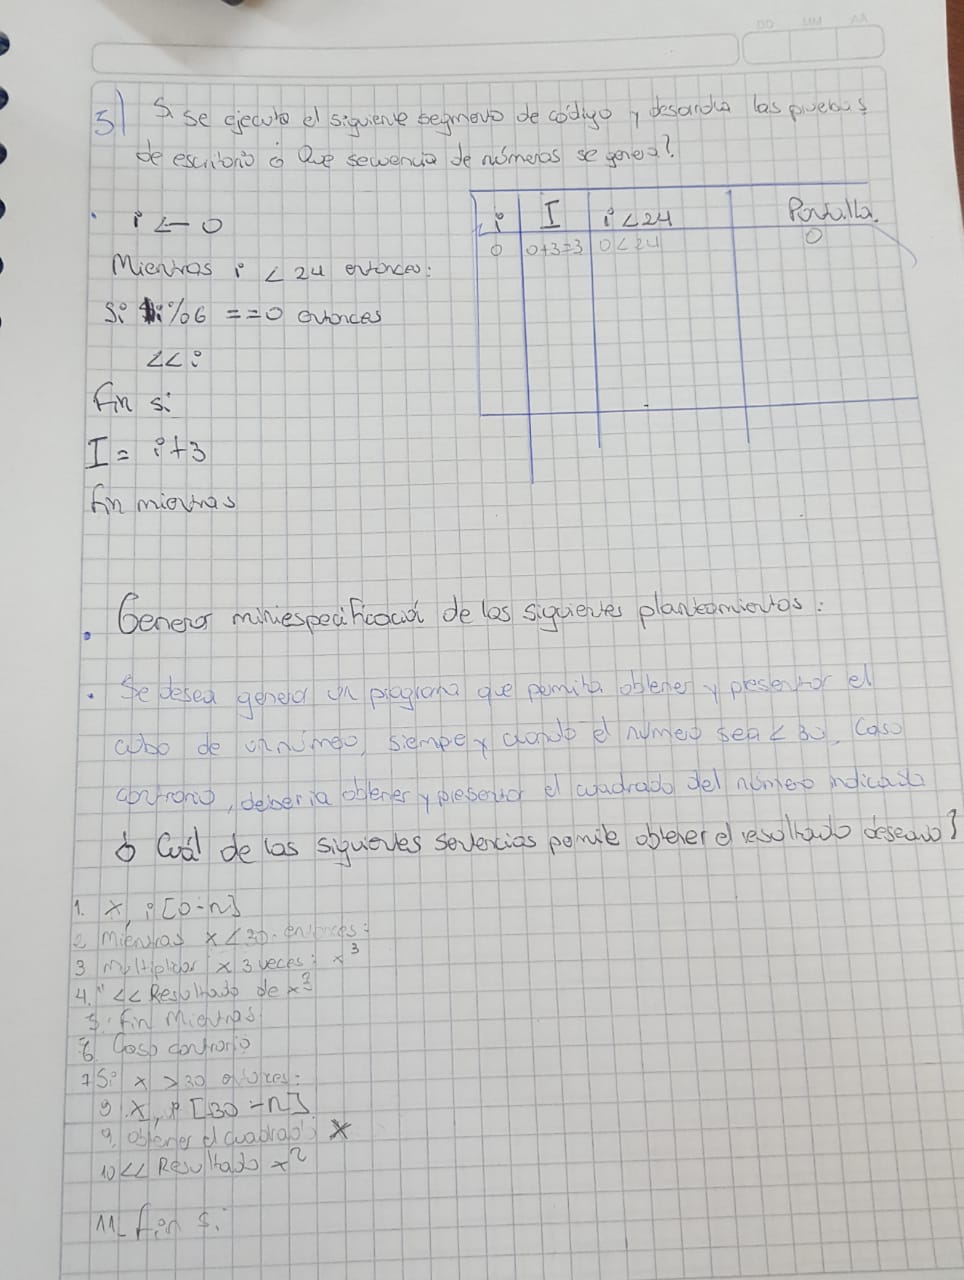 DD MM AA
5) Si se ejecuta el siguiente segmento de código y desarrolla las pruebas
de escritorio ¿ Que secuencia de números se genera?
i <- 0
Mientras i < 24 entonces:
Si i%6 ==0 entonces
<< i
Fin si
I = i+3
fin mientras
i I i<24 Pantalla
0 0+3=3 0<24 0
Generar miniespecificación de los siguientes planteamientos:
• Se desea generar un programa que permita obtener y presentar el
cubo de un número, siempre y cuando el número sea < 30, Caso
contrario, debería obtener y presentar el cuadrado del número indicado
¿ Cuál de las siguientes sentencias permite obtener el resultado deseado?
1. x, i [0-n]
2 Mientras x<30 entonces:
3 Multiplicar x 3 veces: x³
4. << Resultado de x³
5. fin Mientras
6. Caso contrario
7 Si x >30 entonces:
x, [30-n]
9. obtener el cuadrado: x
10 << Resultado x²
11_ fin si